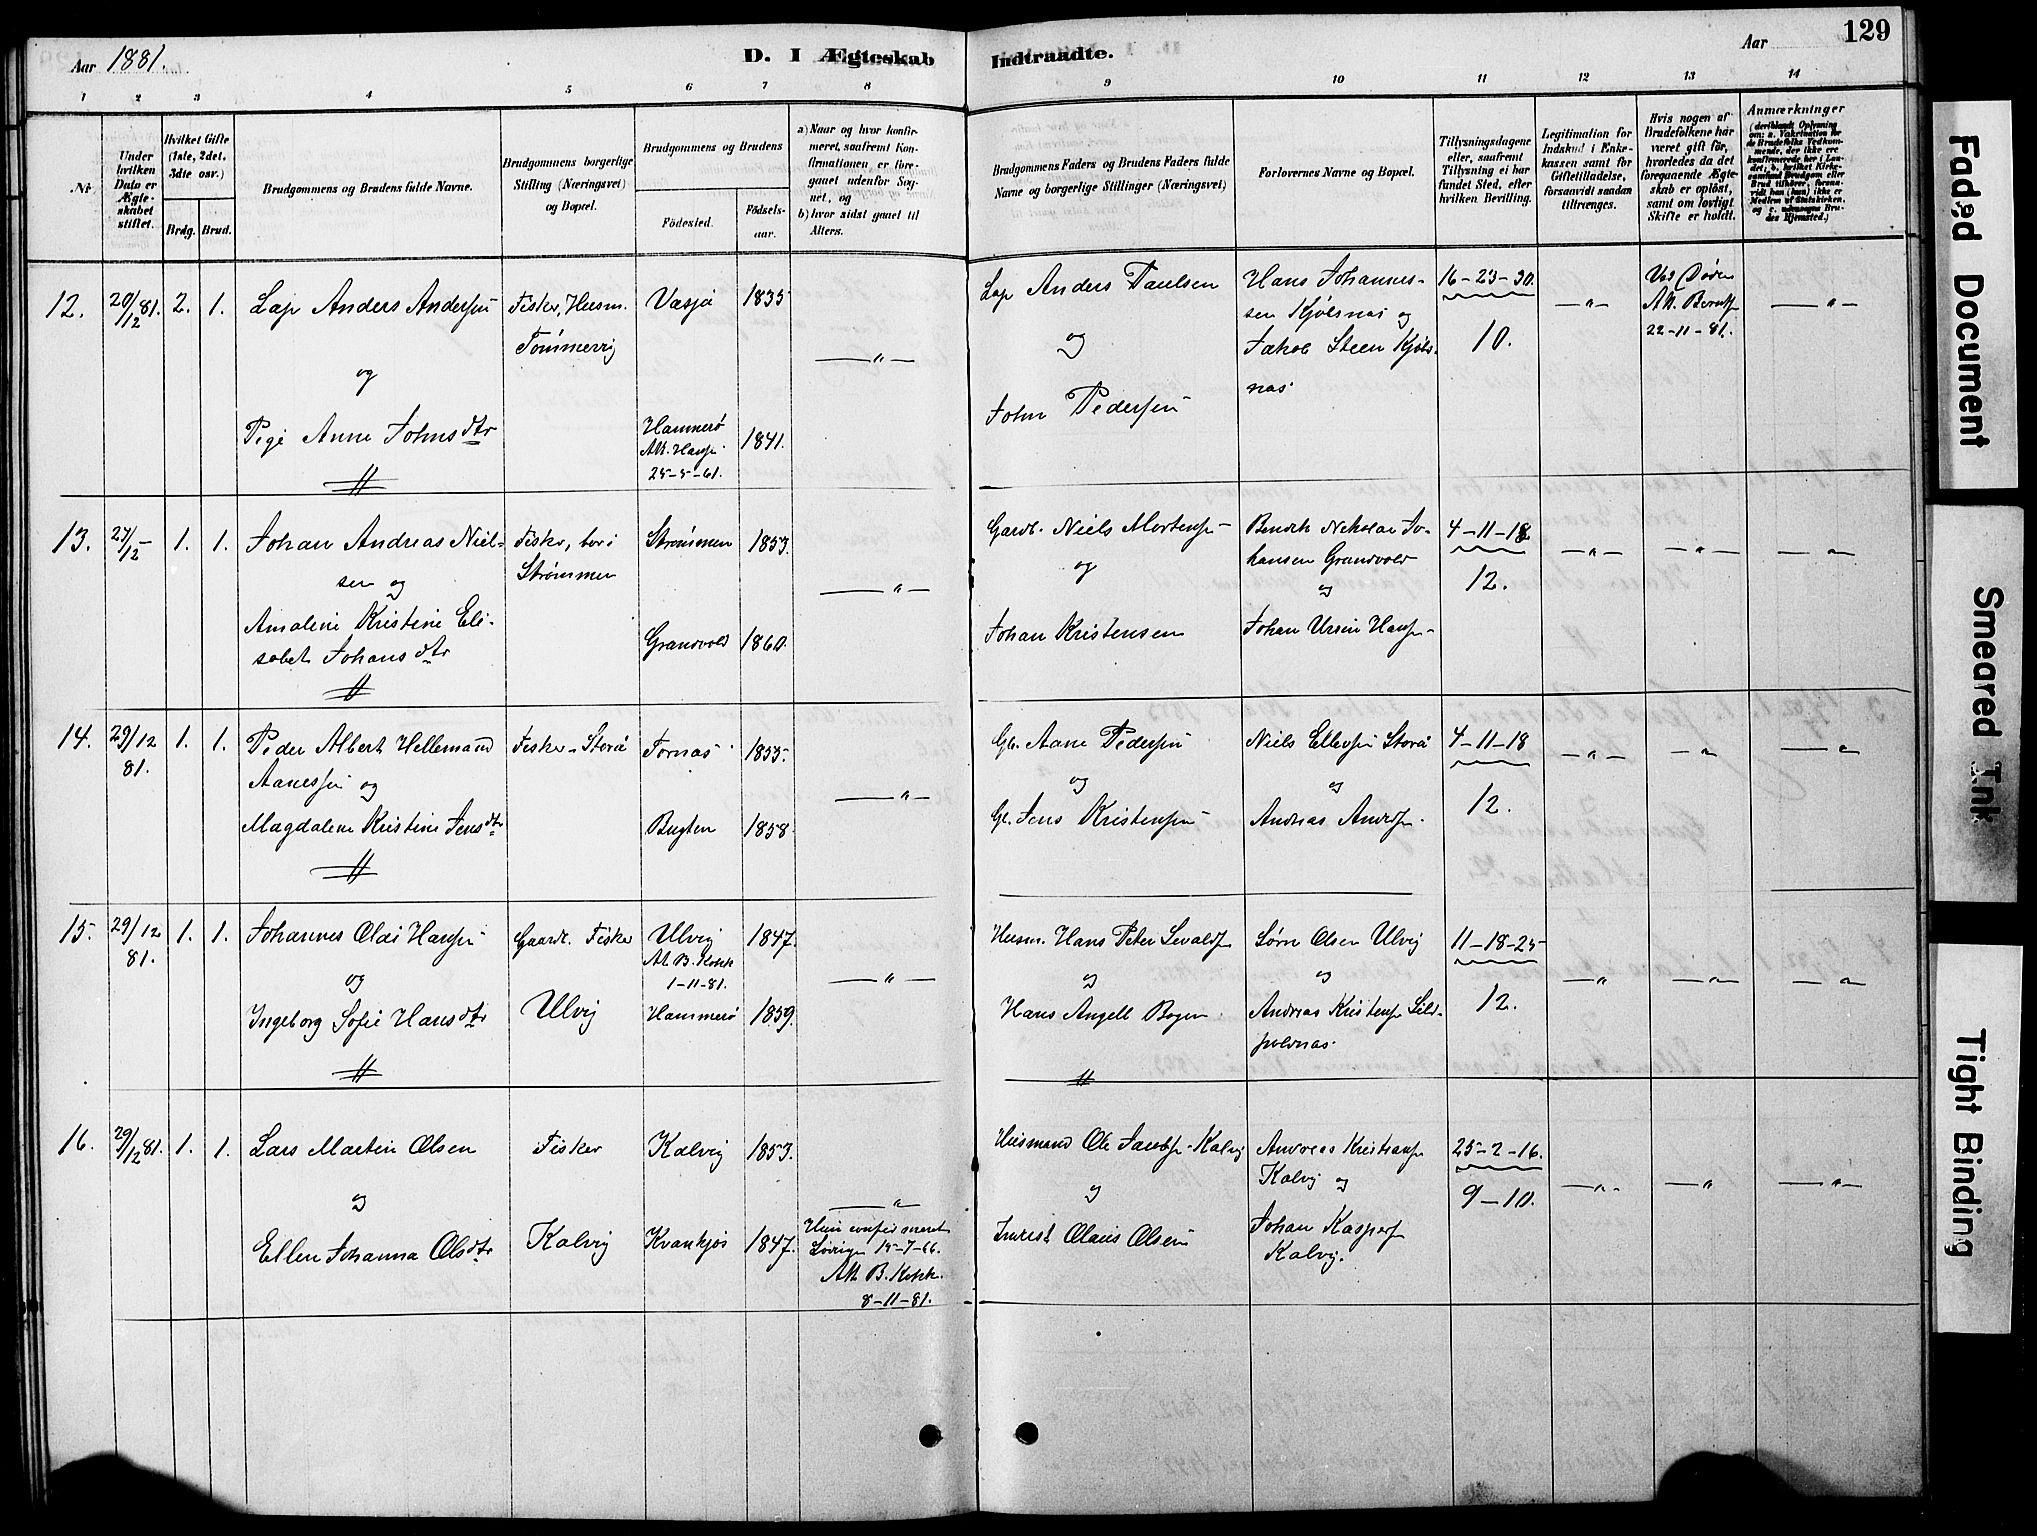 Aar 1881.
D. I Ægteskab Indtraadte.
Aar
129
1 2 3 4 5 6 7 8 9 10 11 12 13 14
Nr.
Under hvilken Dato er Ægteskabet stiftet.
Hvilket Gifte (1ste, 2det, 3die osv.)
Brdg. Brud.
Brudgommens og Brudens fulde Navne.
Brudgommens borgerlige Stilling (Næringsvei) og Bopæl.
Brudgommens og Brudens
Födested.
Födselsaar.
a) Naar og hvor konfirmeret, saafremt Konfirmationen er foregaaet udenfor Sognet, og
b) hvor sidst gaaet til Alters.
Brudgommens Faders og Brudens Faders fulde Navne og borgerlige Stillinger (Næringsvei)
Forlovernes Navne og Bopæl.
Tillysningsdagene eller, saafremt Tillysning ei har fundet Sted, efter hvilken Bevilling.
Legitimation for Indskud i Enkekassen samt for Giftetilladelse, forsaavidt saadan tiltrænges.
Hvis nogen af Brudefolkene har været gift för, hvorledes da det foregaaende Ægteskab er oplöst, samt om lovligt Skifte er holdt.
Anmærkninger
12. 20/12 81. 2. 1.
Lap Anders Andersen
og
Pige Anne Johnsdtr
Fisker, Husm.
Tømmervig
Vasja 1835
Hammerø
Att. Hansen
25-5-61.
1841.
— " —
Lap Anders Paulsen
og
John Pedersen
Hans Johannes-
sen Kjølsnas og
Jakob Steen Kjøls-
nas
16-23-30.
10.
— " —
Ved Døden
22-11-81.
— " —
13. 27/12 - 1. 1.
Johan Andreas Niel-
sen og
Amalene Kristine Eli-
sabet Johansdtr
Fisker, bor i
Strømmen
Strømmen 1853.
Grandvold 1860.
— " —
Gardb. Niels Mortensen
og
Johan Kristensen
Bendik Nikolai Jo-
hansen Grandvold
og
Johan Ursin Hansen
4-11-18
12.
— " — — " — — " —
14. 29/12 81. 1. 1.
Peder Albert Hellemand
Aanessen og
Magdalene Kristine Jensdtr
Fisker Storå
Tornas 1855.
Bugten 1858.
— " —
Gb. Aane Pedersen
og
Gb. Jens Kristensen
Niels Ellevsen Storå
og
Andreas Andersen
4-11-18
12.
— " — — " — — " —
15. 29/12 81. 1. 1.
Johannes Olai Hansen
og
Ingeborg Sofie Hansdtr
Gaardb. Fisker
Ulvig
Ulvig 1847.
At. B. Kokk
1-11-81.
Hammerø 1859.
— " —
Husm. Hans Peter Sevaldsen
og
Hans Angell Bogen
Sørn Olsen Ulvig
og
Andreas Kristensen Sild-
polnas.
11-18-25
12.
— " — — " — — " —
16. 29/12 81. 1. 1.
Lars Martin Olsen
og
Ellen Johanna Olsdtr
Fisker
Kalvig
Kalvig 1853.
Kvankjos 1847.
— " —
Hun confirmeret
Lødingen 15-7-66.
Att B. Kokk.
8-11-81.
Husmand Ole Jacobsen Kalvig
og
Inderst Olaus Olsen
Andreas Kristiansen
Kalvig og
Johan Kaspersen
Kalvig.
25-2-16.
9-10.
— " — — " — — " —
Faded Document
Smeared Ink
Tight Binding